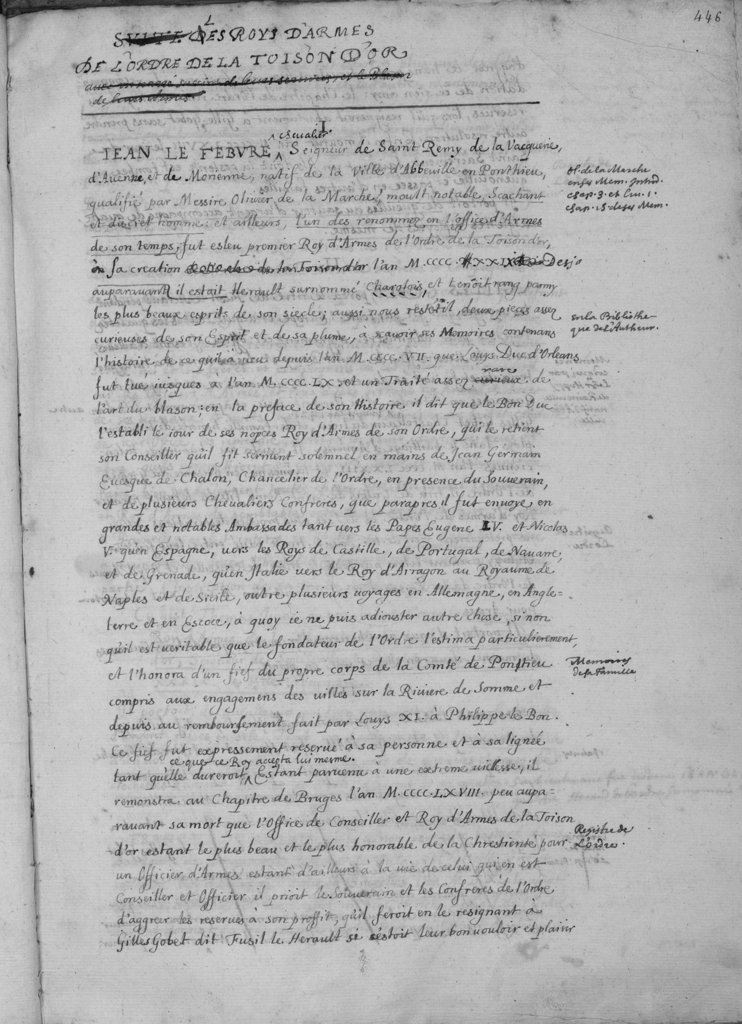 446
DES ROYS D'ARMES
DE L'ORDRE DE LA TOISON D'OR
de leurs
I
chevalier
IEAN LE FEBVRE, Seigneur de Saint Remy de la Vacquerie,
d'Auenne, et de Morienne, natif de la Ville d'Abbeuille en Ponthieu,
qualifié par Messire Oliuier de la Marche, moult notable, Scachant
et discret homme: et ailleurs, l'un des renommez en l'office d'Armes
de son temps, fut esleu premier Roy d'Armes de l'Ordre de la Toison d'or,
en sa creation l'an M.CCCC. XXIX Desja
auparauant il estait Herault surnommé Charolois, et tenoit rang parmy
les plus beaux esprits de son siecle; aussi nous reste il, deux pieces assez
curieuses de son Esprit et de sa plume, à scavoir ses Memoires contenans
l'histoire de ce quil à veu depuis l'an M.CCCC.VII. que Louys Duc d'Orleans
fut tué iusques à l'an M.CCCC.LX. et un Traité assez curieux de
rare
l'art du blason; en la preface de son Histoire il dit que le Bon Duc
l'establi le iour de ses nopces Roy d'Armes de son Ordre, qui le retient
son Conseiller qu'il fit serment solemnel en mains de Jean Germain
Euesque de Chalon, Chancelier de l'Ordre, en presence du Souuerain,
et de plusieurs Chevaliers Confreres, que par apres il fut enuoyé en
grandes et notables Ambassades tant vers les Papes Eugene IV. et Nicolas
V. qu'en Espagne, vers les Roys de Castille, de Portugal, de Nauarre,
et de Grenade, qu'en Italie vers le Roy d'Arragon au Royaume de
Naples et de Sicile, outre plusieurs voyages en Allemagne, en Angle-
terre et en Escoce, à quoy ie ne puis adiouster autre chose, si non
qu'il est veritable que le fondateur de l'Ordre l'estima particulierement,
et l'honora d'un fief du propre corps de la Comté de Ponthieu
compris aux engagemens des villes sur la Riuiere de Somme et
depuis au remboursement fait par Louys XI. à Philippe le Bon.
Ce fief fut expressement reserué à sa personne et à sa lignée
ce que ce Roy accepta lui mesme.
tant qu'elle dureroit, Estant paruenu à une extreme vieillesse, il
remonstra au Chapitre de Bruges l'an M.CCCC.LXVIII. peu aupa-
rauant sa mort que l'Office de Conseiller et Roy d'Armes de la Toison
d'or estant le plus beau et le plus honorable de la Chrestienté pour
un Officier d'Armes estant d'ailleurs à la vie de celui qui en est
Conseiller et Officier il prioit le Souuerain et les Confreres de l'Ordre
d'aggreer les reserues à son proffit, qu'il feroit en le resignant à
Gilles Gobet dit Fusil le Herault si s'estoit leur bon vouloir et plaisir
Ol. de la Marche
en ses Mem. Introd.
chap. 3. et Liu. 1.
chap. 15 de ses Mem.
en la Bibliothe-
que de l'Autheur.
Memoires
de sa Famille
Registre de
L'ordre.